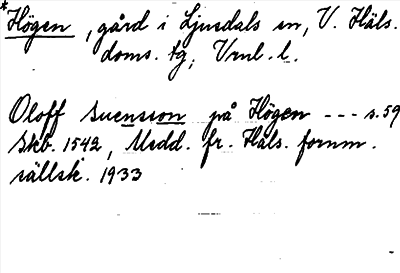 *Högen, gård i Ljusdals sn, V. Häls.
doms. tg, Vrml. l.
Oloff Suensson på Högen --- s. 59
Skb. 1542, Medd. fr. Häls. fornm.
sällsk. 1933